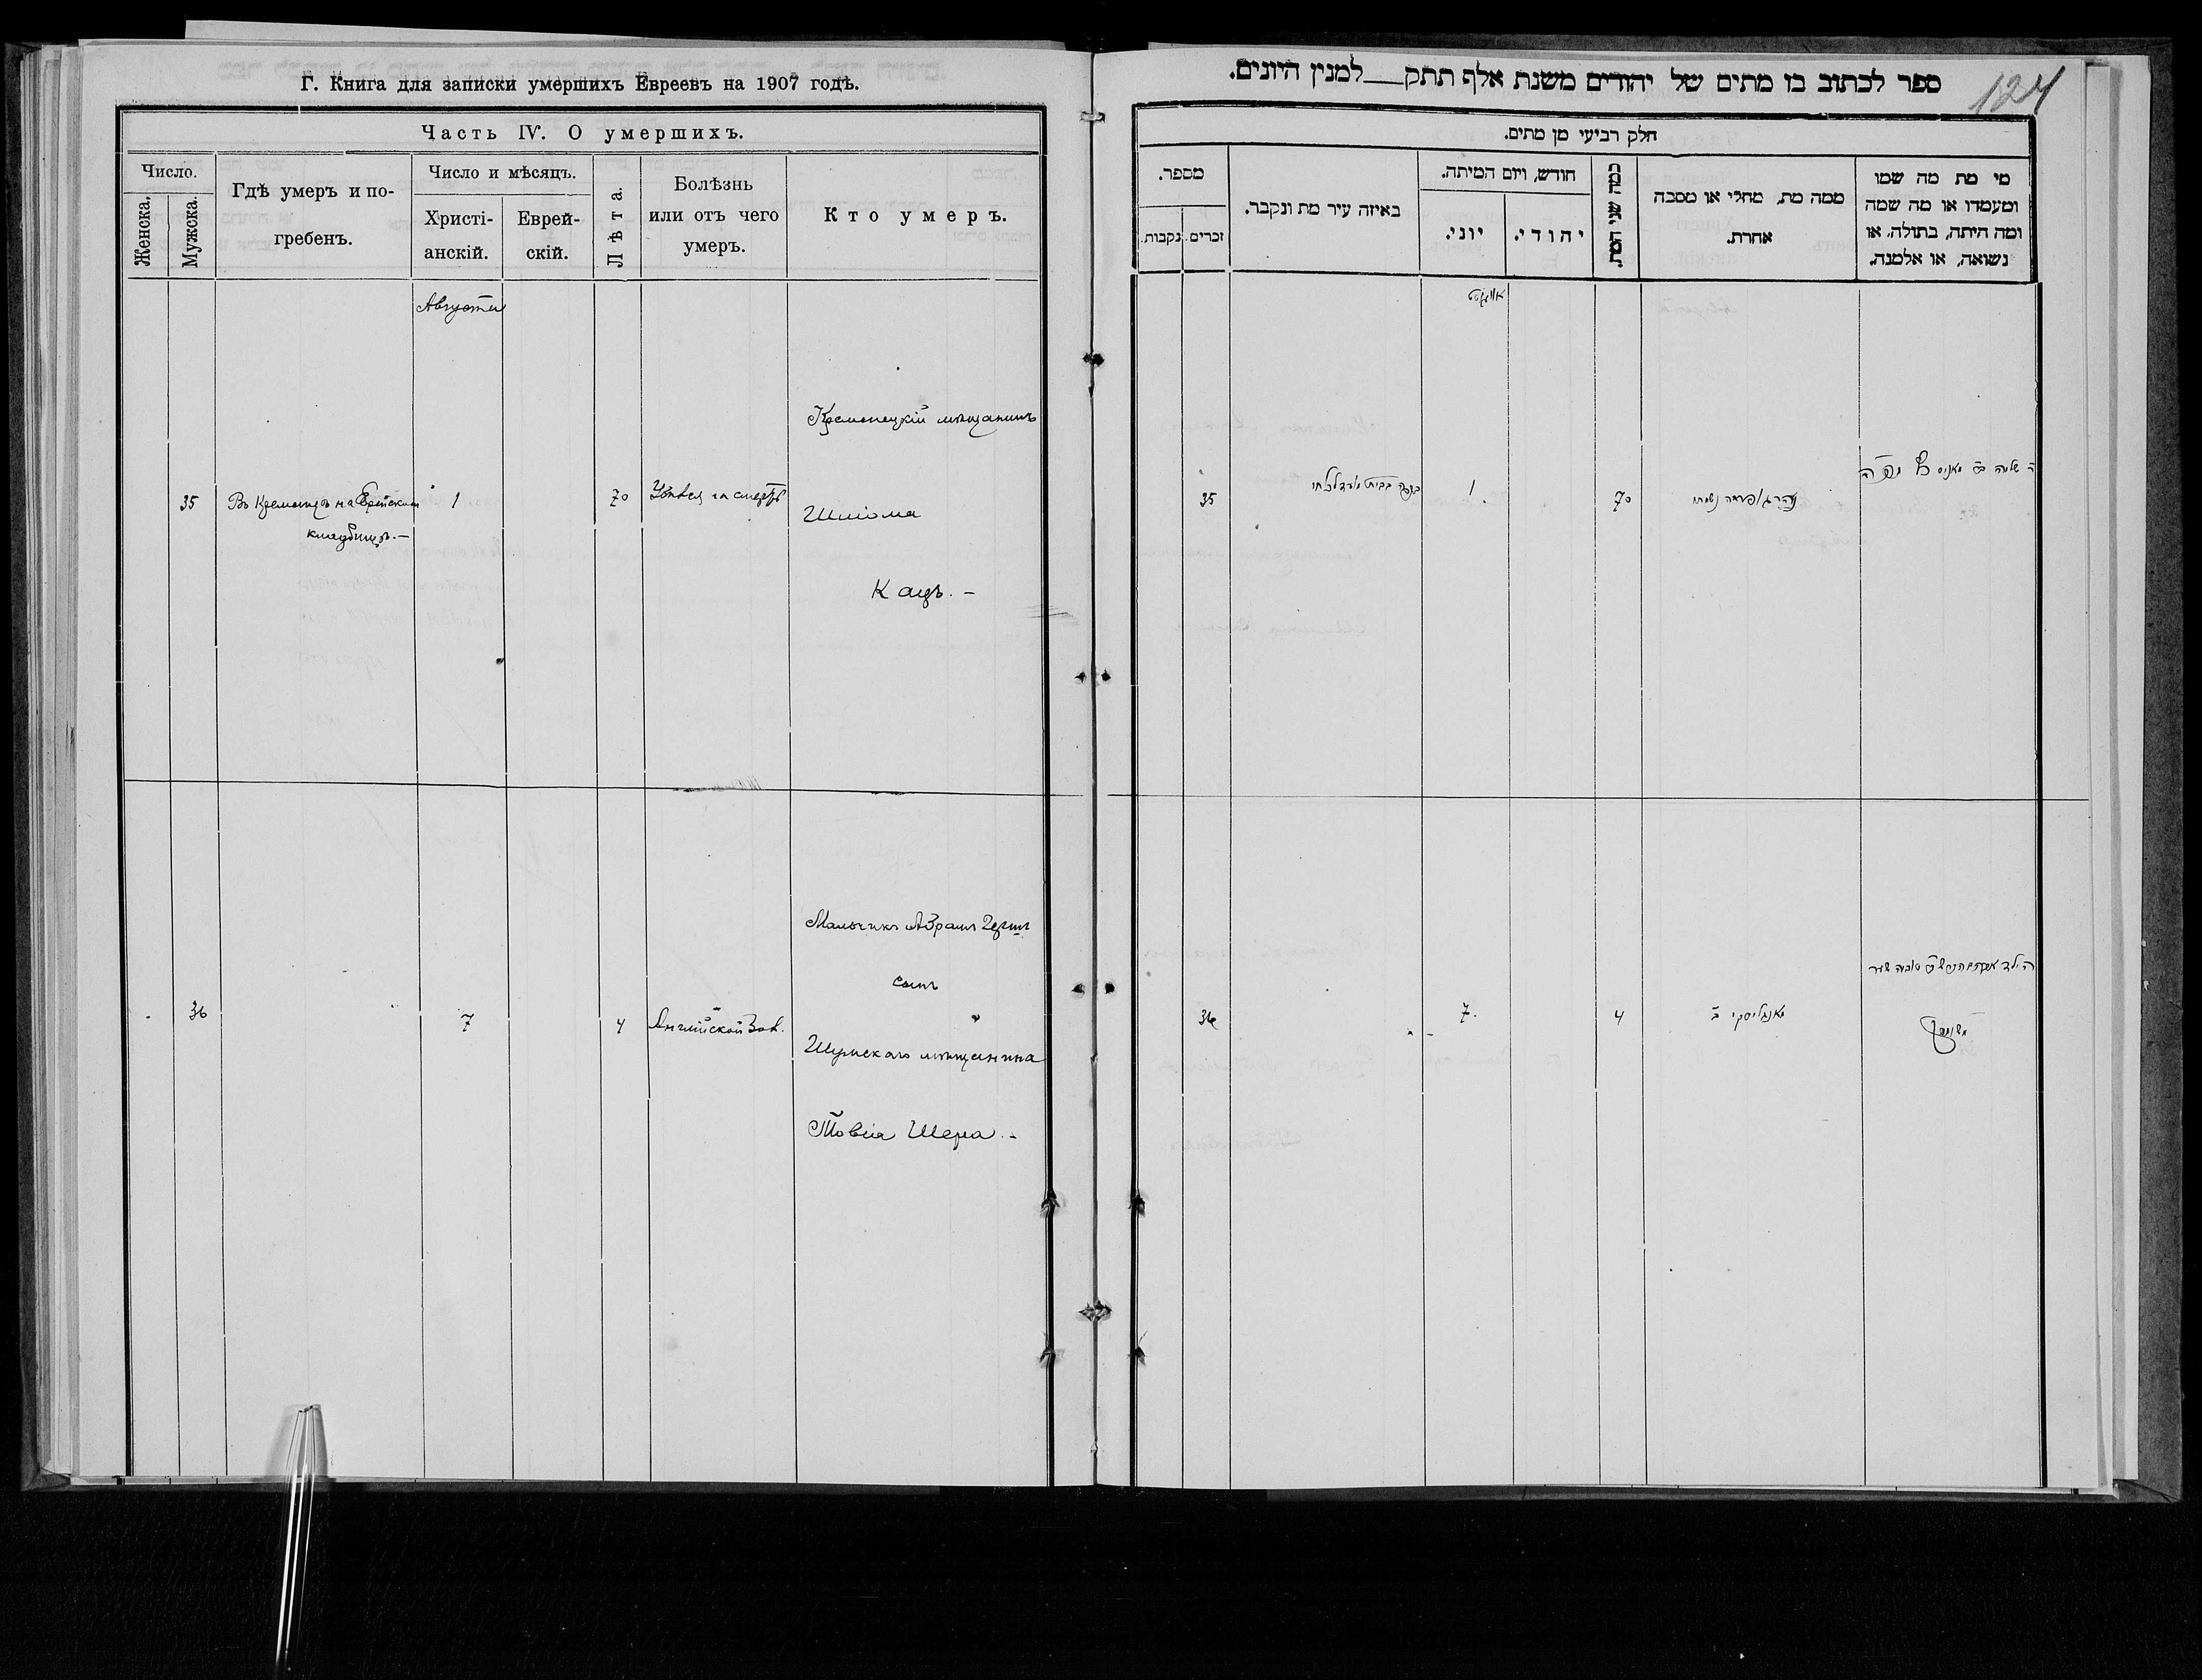 Г. Книга для записки умершихъ Евреевъ на 1907 годъ.
Часть IV. О умершихъ.
Число.
Женска.
Мужска.
Гдѣ умеръ и по-
гребенъ.
Число и мѣсяцъ.
Христі-
анскій.
Еврей-
скій.
Лѣта.
Болѣзнь
или отъ чего
умеръ.
Кто умеръ.
Августа
35
Въ Кременцѣ на Еврейском
кладбищѣ.—
1
70
Убился на смерть
Кременецкій мѣщанинъ
Шліома
Кацъ.—
36
7
4
Англійской бол.
Мальчикъ Абрамъ Герш
сынъ
Шумскаго мѣщанина
Товія Шера.-
124
ספר לכתוב בו מתים של יהודים משנת אלף תתק—למנין היונים.
חלק רביעי מן מתים.
מספר.
נקבות.
זכרים.
באיזה עיר מת ונקבר.
חודש, ויום המיתה.
יוני.
יהודי.
כמה שני המת.
ממה מת, מחלי או מסבה
אחרת.
מי מת מה שמו
ומעמדו או מה שמה
ומה היתה, בתולה, או
נשואה, או אלמנה.
אויגוסט
35
1
70
שלמה
36
7.
4
הילד